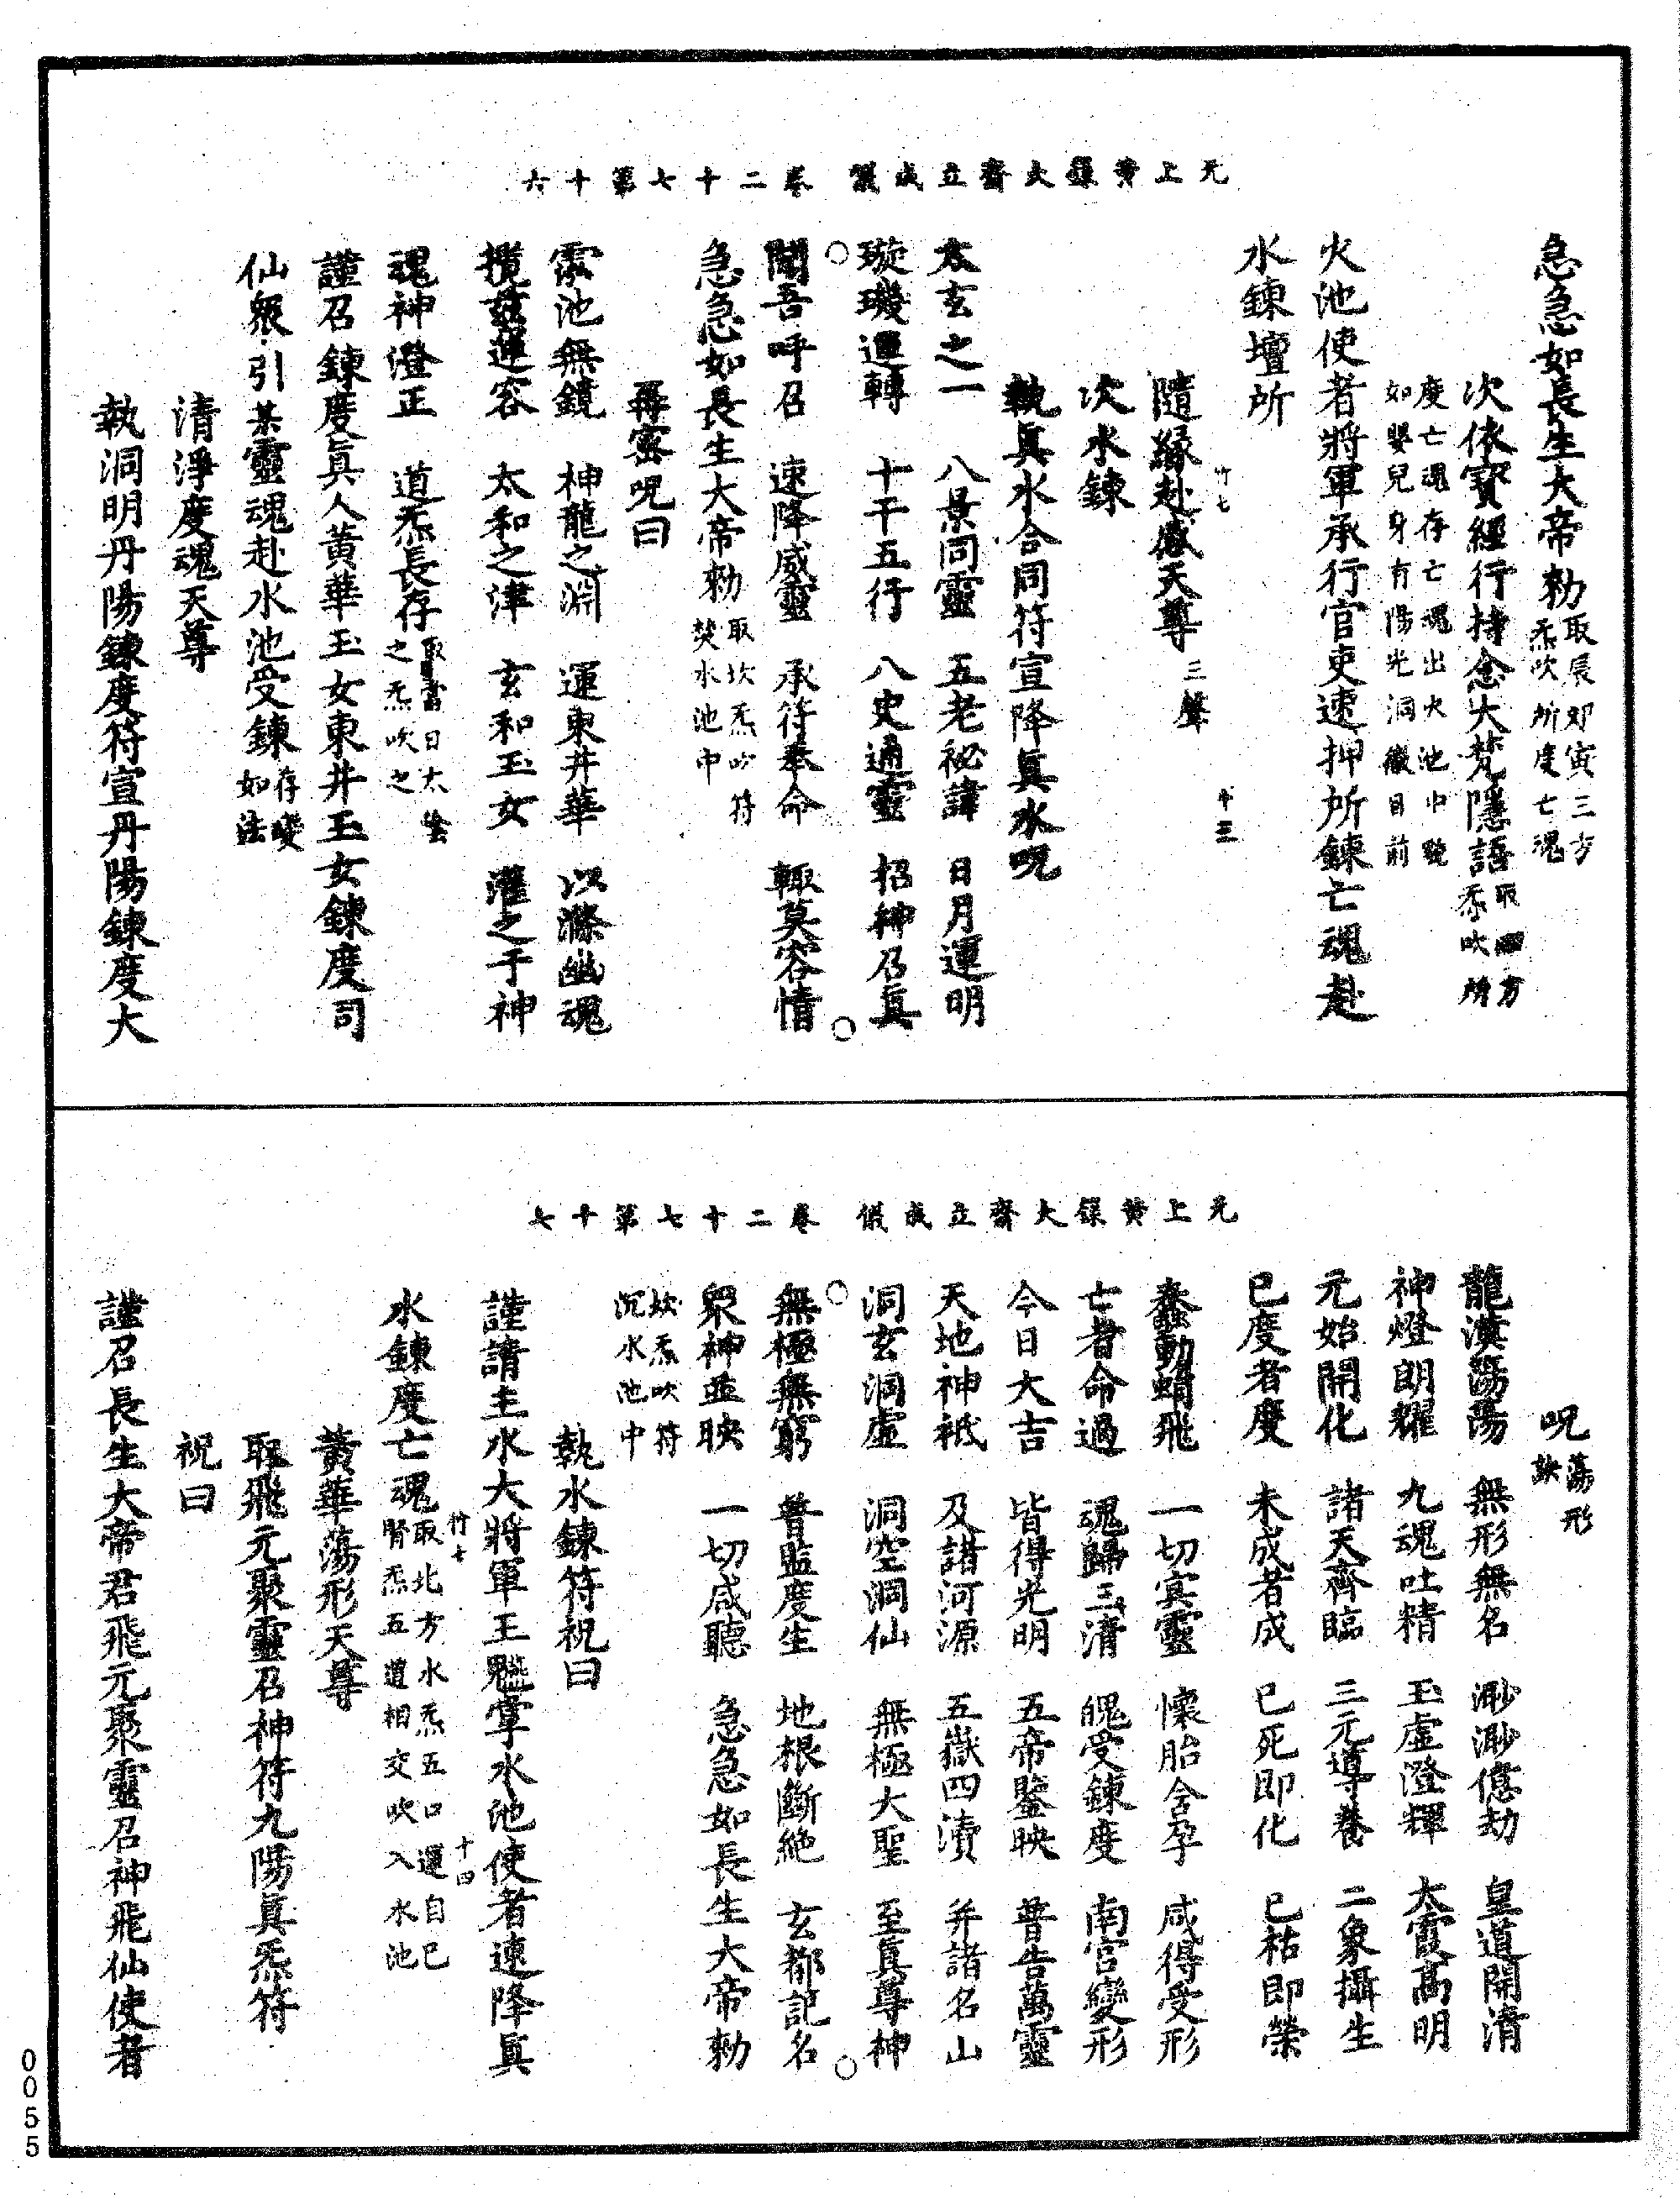 元上黃籙大齋立成儀　卷二十七第十六
急急如長生大帝勑取辰邓寅三方炁吹所度亡魂
次依寶經行持念大梵隱語取四方炁吹所
度亡魂存亡魂出火池中貌如嬰兒身有陽光洞徹目前
火池使者將軍承行官吏速押所鍊亡魂赴
水鍊壇所
隨緣赴感天尊三聲
竹七　十三
次水鍊
執眞水合同符宣降眞水呪
太玄之一　八景同靈　五老祕諱　日月運明
璇璣運轉　十干五行　八史通靈　招神召眞
聞吾呼召　速降威靈　承符奉命　輙莫容情
急急如長生大帝勑取坎炁吹符焚水池中
再密呪曰
霐池無鏡　神龍之淵　運東井華　以滌幽魂
攬茲蓮容　太和之津　玄和玉女　濯之于神
魂神澄正　道炁長存取當日太陰之炁吹之
謹召鍊度眞人黃華玉女東井玉女鍊度司
仙衆引某靈魂赴水池受鍊存變如法
清淨度魂天尊
執洞明丹陽鍊度符宣丹陽鍊度大
元上黃籙大齋立成儀　卷二十七第十七
呪蕩形訣
龍漢蕩蕩　無形無名　渺渺億劫　皇道開清
神燈朗耀　九魂吐精　玉虛澄輝　太霞高明
元始開化　諸天齊臨　三元導養　二象攝生
已度者度　未成者成　已死即化　已枯即榮
蠢動蜎飛　一切冥靈　懷胎含孕　咸得受形
亡者命過　魂歸三清　魄受鍊度　南宮變形
今日大吉　皆得光明　五帝鑒映　普告萬靈
天地神祇　及諸河源　五嶽四瀆　并諸名山
洞玄洞虛　洞空洞仙　無極大聖　至眞尊神
無極無窮　普監度生　地根斷絶　玄都記名
衆神並映　一切咸聽　急急如長生大帝勑
坎炁吹符沉水池中
執水鍊符祝曰
謹請主水大將軍王魒掌水池使者速降眞
竹七　十四
水鍊度亡魂取北方水炁五口運自己腎炁五道相交吹入水池
黃華蕩形天尊
取飛元聚靈召神符九陽眞炁符
祝曰
謹召長生大帝君飛元聚靈召神飛仙使者
0055